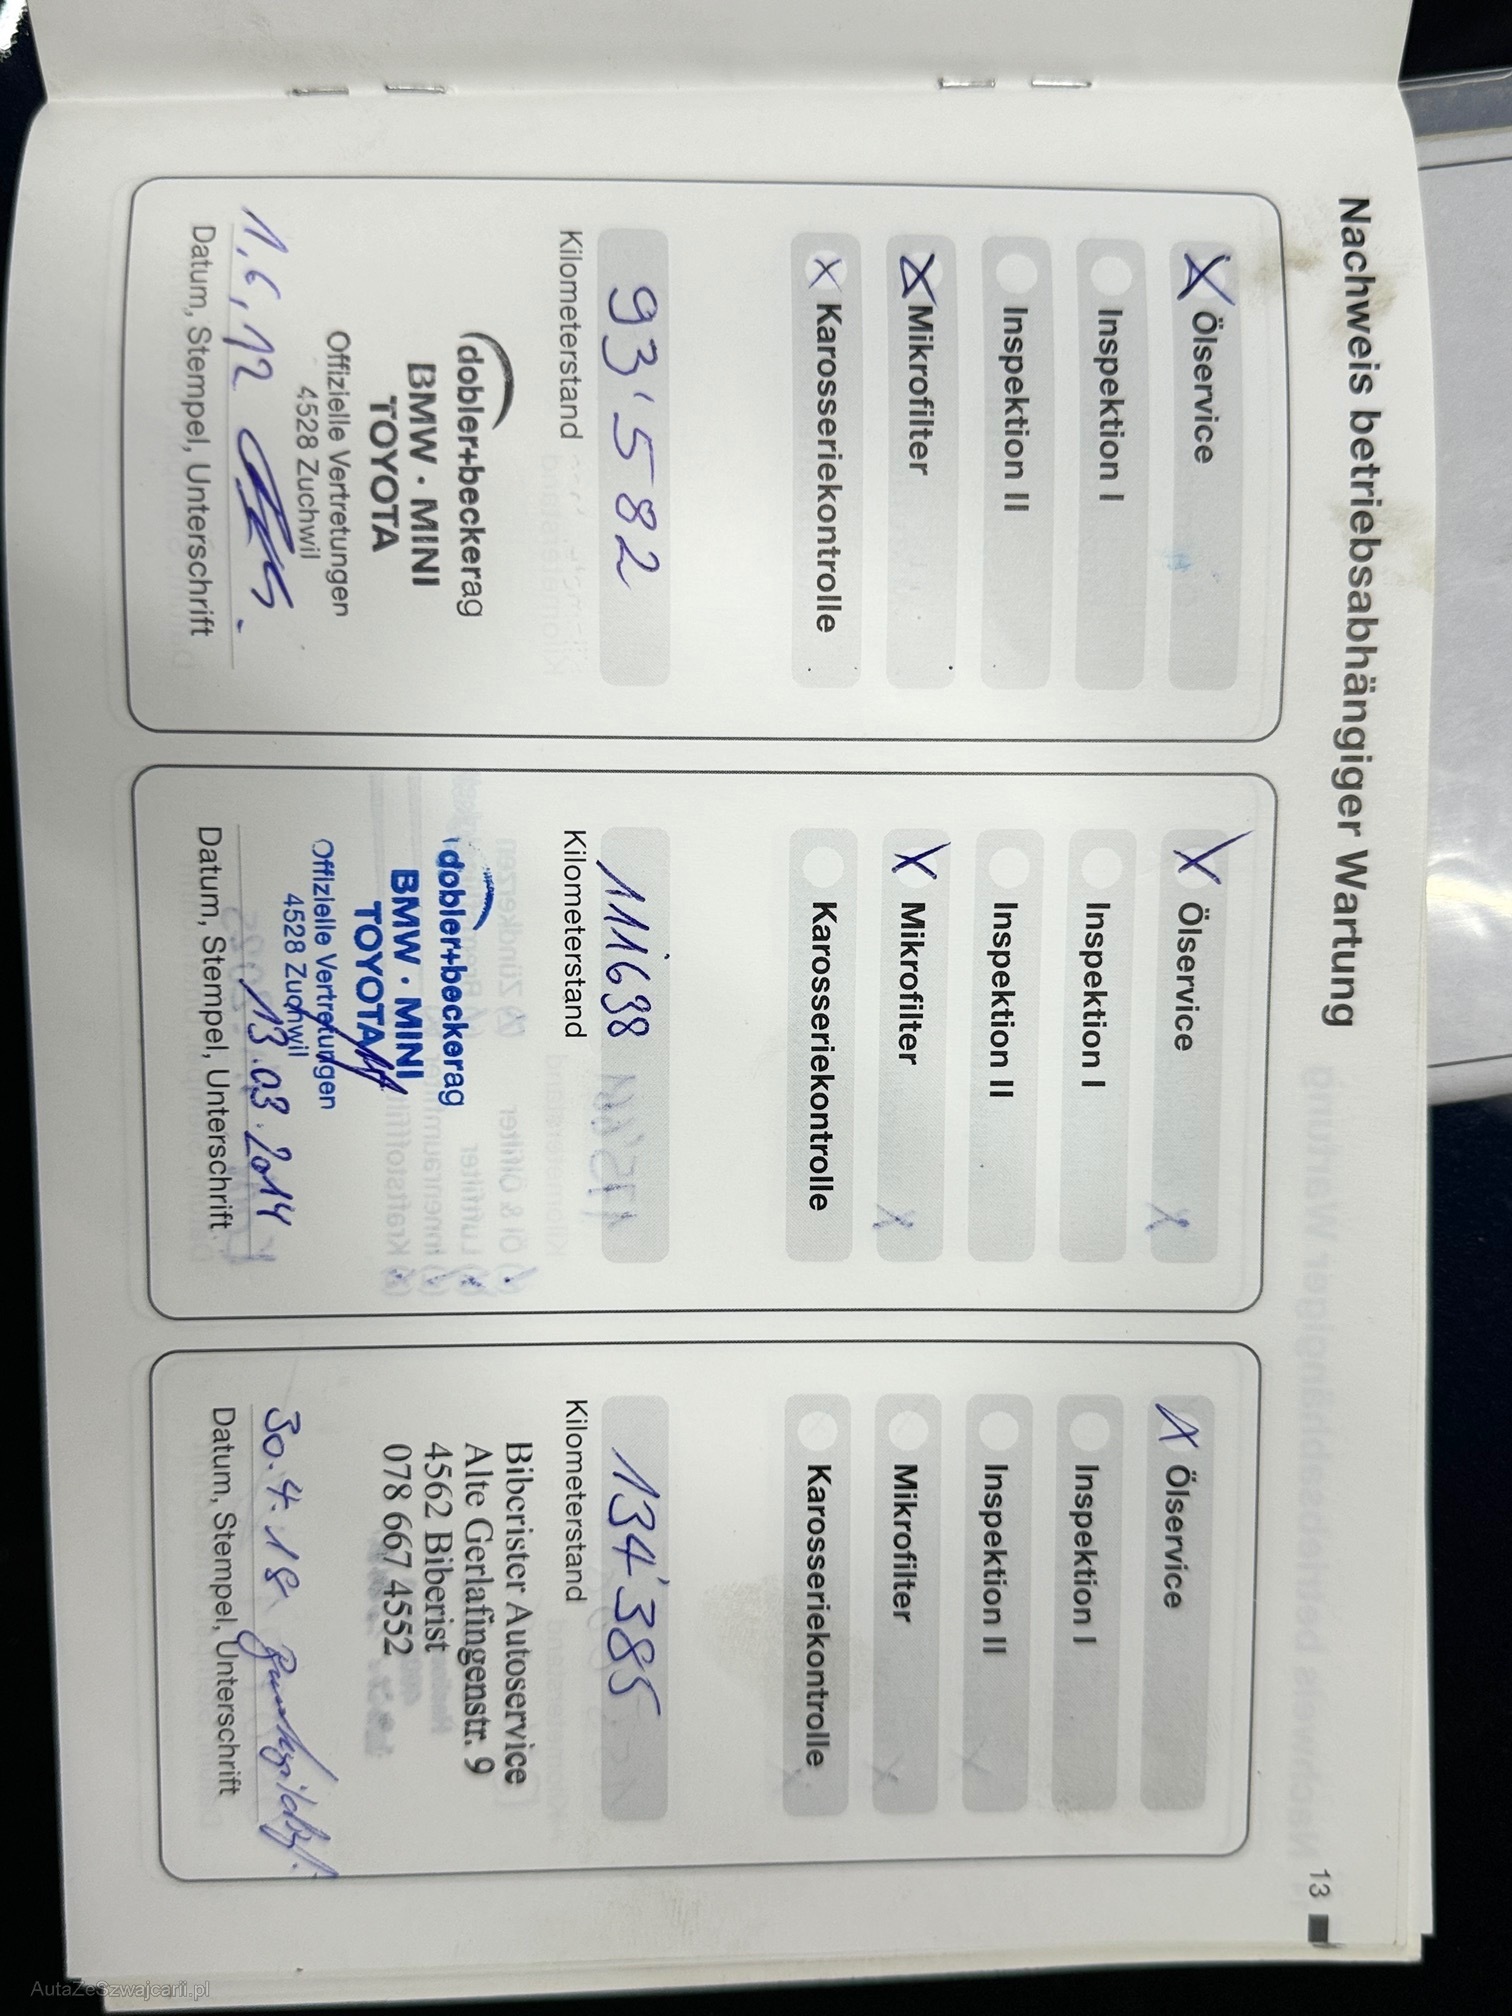 Nachweis betriebsabhängiger Wartung
X Ölservice
Inspektion I
Inspektion II
X Mikrofilter
X Karosseriekontrolle
93'582
Kilometerstand
dobler+beckerag
BMW · MINI
TOYOTA
Offizielle Vertretungen
4528 Zuchwil
1.6.12
Datum, Stempel, Unterschrift
X Ölservice
Inspektion I
Inspektion II
X Mikrofilter
Karosseriekontrolle
111'698
Kilometerstand
dobler+beckerag
BMW · MINI
TOYOTA
Offizielle Vertretungen
4528 Zuchwil
13.03.2014
Datum, Stempel, Unterschrift
X Ölservice
Inspektion I
Inspektion II
Mikrofilter
Karosseriekontrolle
134'385
Kilometerstand
Biberister Autoservice
Alte Gerlafingenstr. 9
4562 Biberist
078 667 4552
30.4.18
Datum, Stempel, Unterschrift
13
AutaZeSzwajcarii.pl